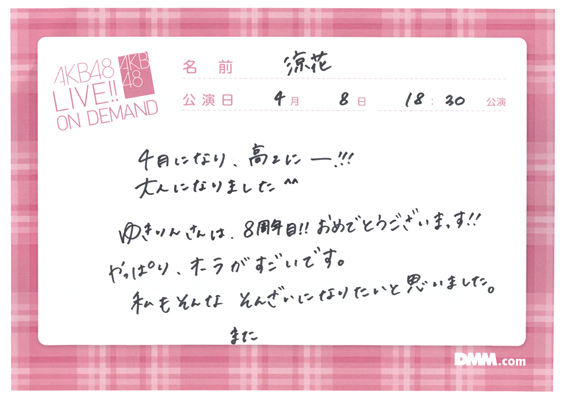 AKB48
LIVE!!
ON DEMAND
AKB
48
名前 涼花
公演日 4月 8日 18:30 公演
4月になり、高2にー!!!
大人になりました^^
ゆきりんさんは、8周年目!!おめでとうございまっす!!
やっぱり、オーラがすごいです。
私もそんな そんざいになりたいと思いました。
また
DMM.com